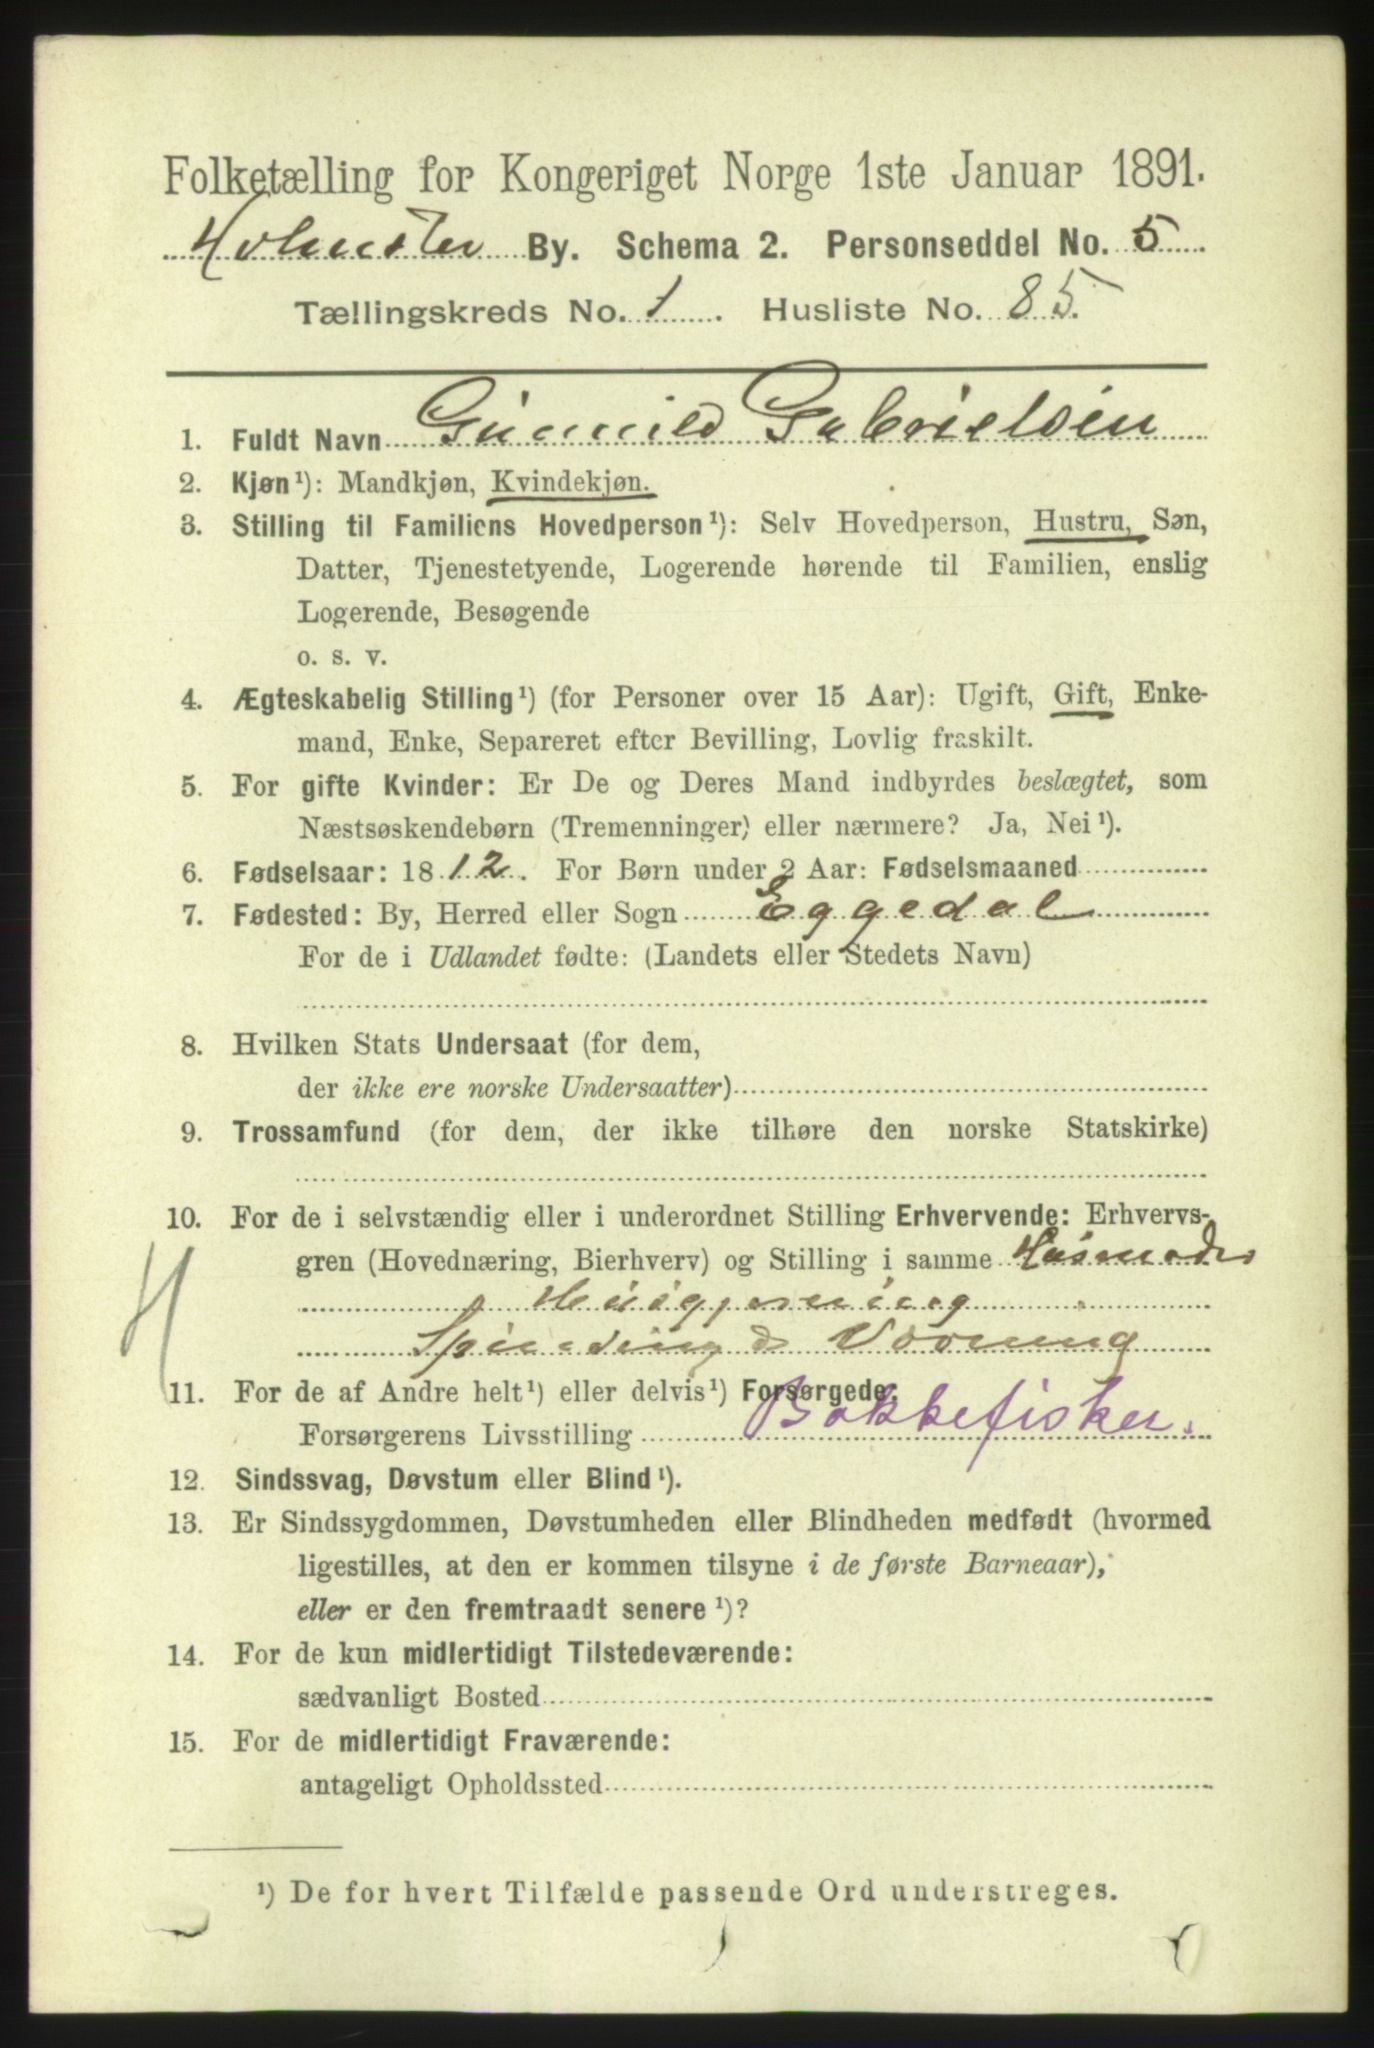 Folketælling for Kongeriget Norge 1ste Januar 1891.
By. Schema 2. Personseddel No. 5
Tællingskreds No. 1. Husliste No. 85.
1. Fuldt Navn Gunnild Gabrielsen
2. Kjøn¹): Mandkjøn, Kvindekjøn.
3. Stilling til Familiens Hovedperson¹): Selv Hovedperson, Hustru, Søn,
Datter, Tjenestetyende, Logerende hørende til Familien, enslig
Logerende, Besøgende
o. s. v.
4. Ægteskabelig Stilling¹) (for Personer over 15 Aar): Ugift, Gift, Enke-
mand, Enke, Separeret efter Bevilling, Lovlig fraskilt.
5. For gifte Kvinder: Er De og Deres Mand indbyrdes beslægtet, som
Næstsøskendebørn (Tremenninger) eller nærmere? Ja, Nei¹).
6. Fødselsaar: 1812. For Børn under 2 Aar: Fødselsmaaned
7. Fødested: By, Herred eller Sogn Eggedal
For de i Udlandet fødte: (Landets eller Stedets Navn)
8. Hvilken Stats Undersaat (for dem,
der ikke ere norske Undersaatter)
9. Trossamfund (for dem, der ikke tilhøre den norske Statskirke)
10. For de i selvstændig eller i underordnet Stilling Erhvervende: Erhvervs-
gren (Hovednæring, Bierhverv) og Stilling i samme Husmoder
Husgjerning
Spinding & Vævning
11. For de af Andre helt¹) eller delvis¹) Forsørgede:
Forsørgerens Livsstilling Bakkefisker.
H
12. Sindssvag, Døvstum eller Blind¹).
13. Er Sindssygdommen, Døvstumheden eller Blindheden medfødt (hvormed
ligestilles, at den er kommen tilsyne i de første Barneaar),
eller er den fremtraadt senere¹)?
14. For de kun midlertidigt Tilstedeværende:
sædvanligt Bosted
15. For de midlertidigt Fraværende:
antageligt Opholdssted
¹) De for hvert Tilfælde passende Ord understreges.